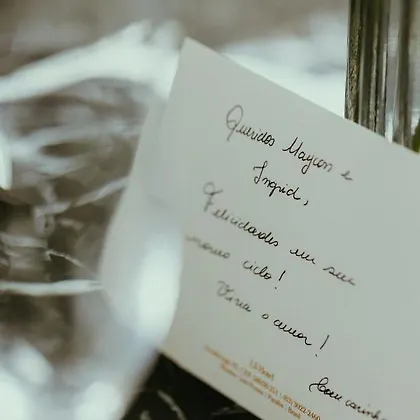 Queridos Maycon e
Ingrid,
Felicidades em seu
novo ciclo!
Viva o amor!
Com carinho